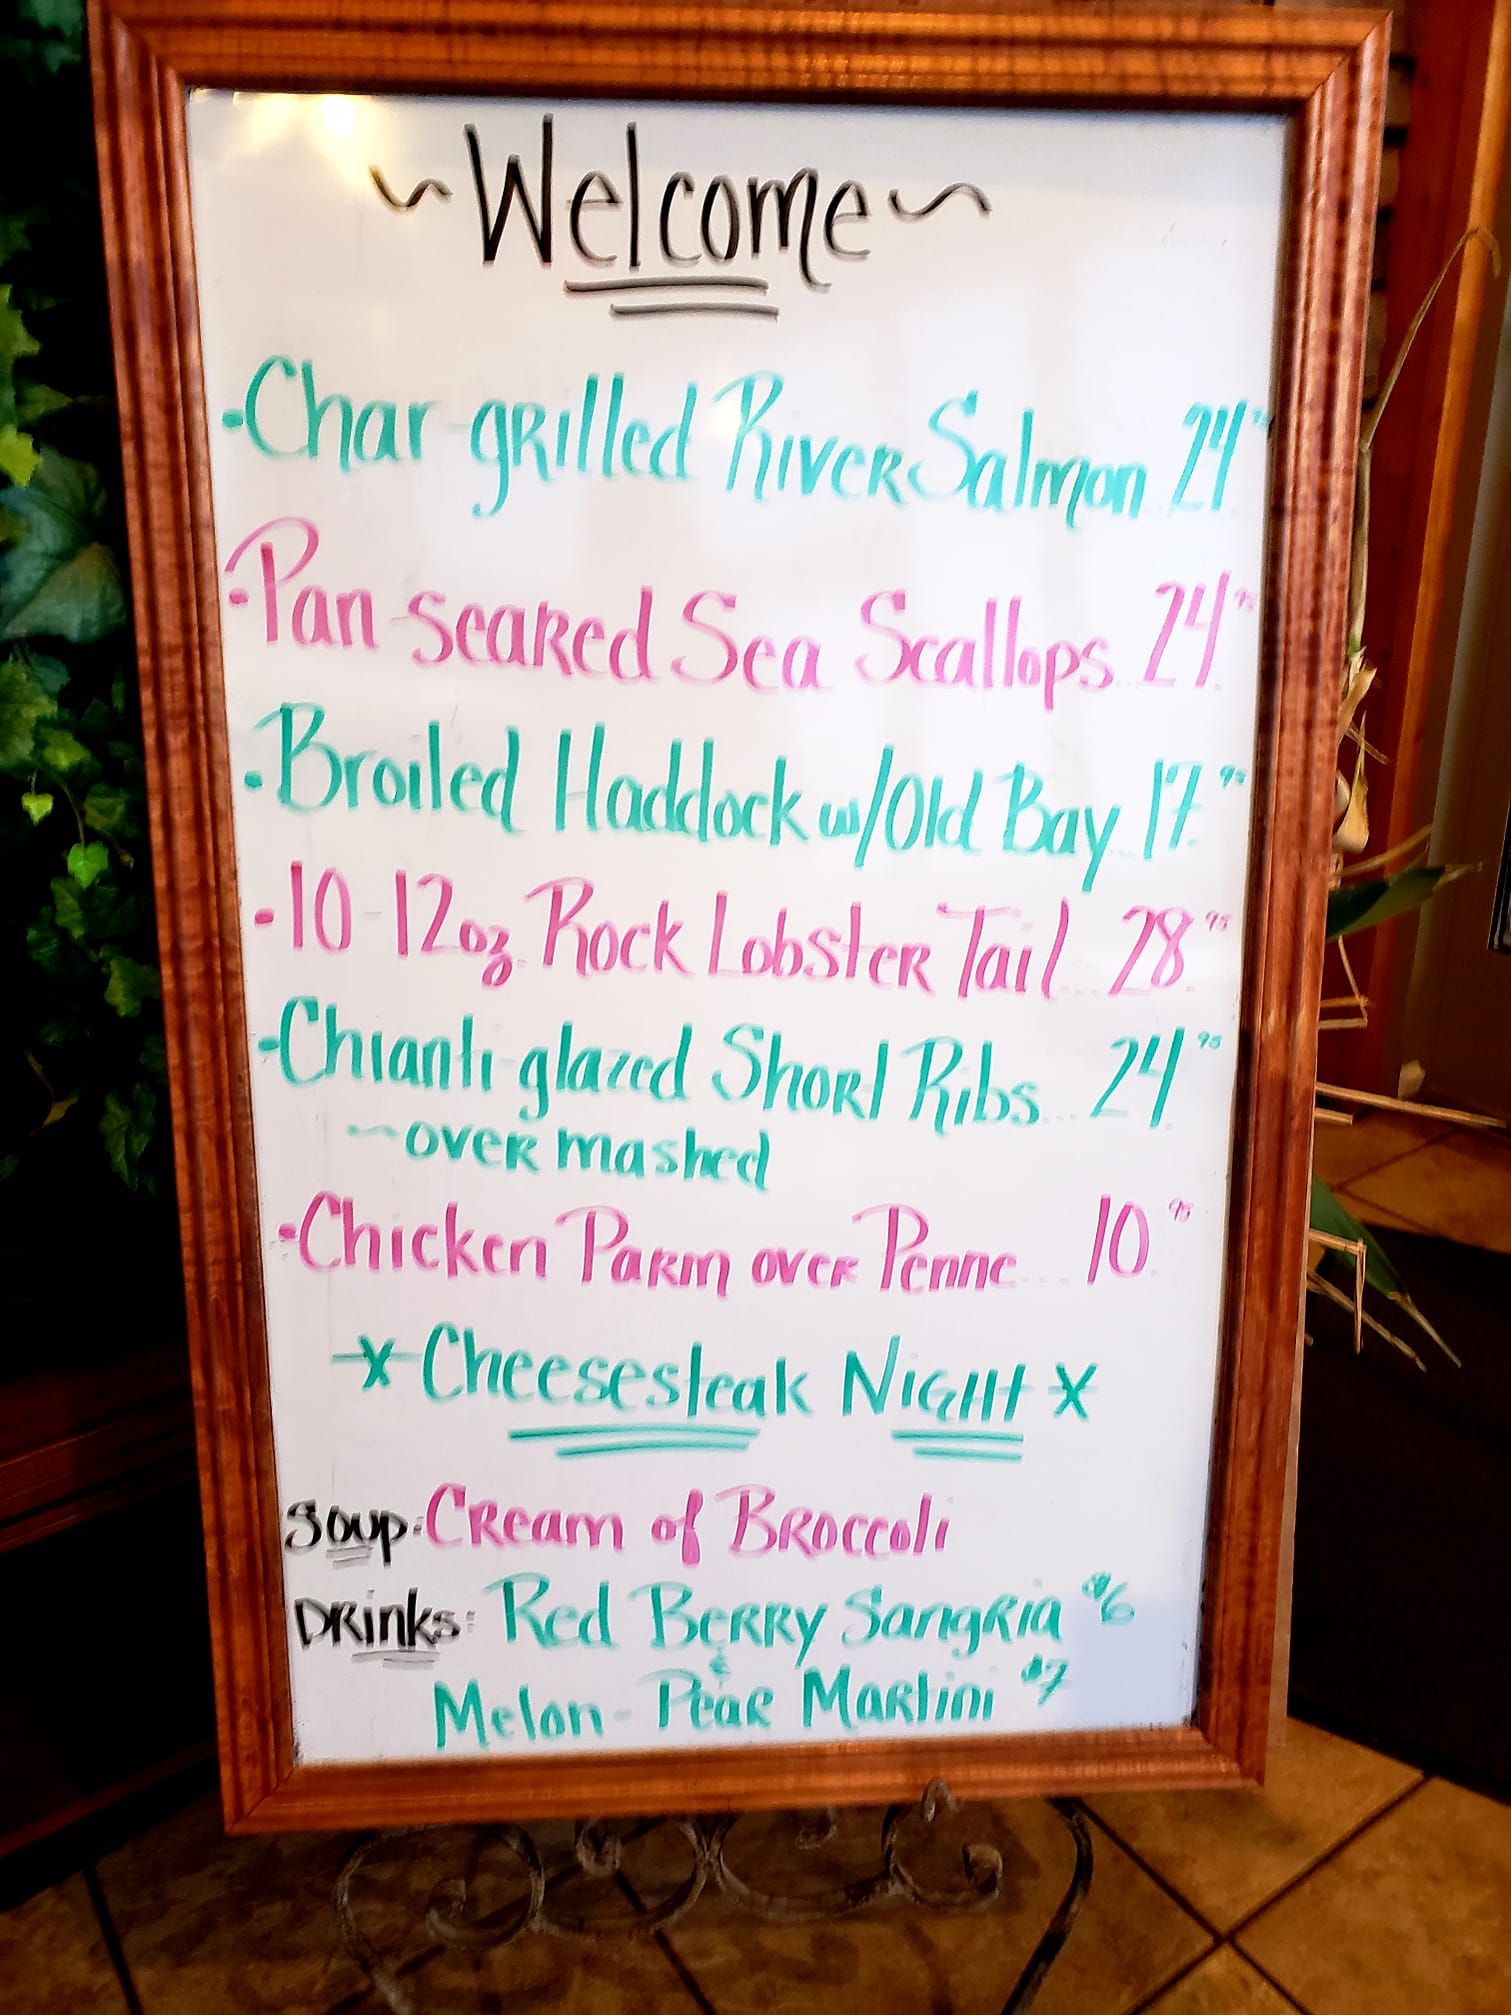 ~Welcome~
-Char-grilled River Salmon 24
-Pan-seared Sea Scallops 24 95
-Broiled Haddock w/Old Bay 17 95
-10-12oz Rock Lobster Tail 28 95
-Chianti-glazed Short Ribs 24 95
~over mashed
-Chicken Parm over Penne 10 95
*Cheesesteak Night*
Soup: Cream of Broccoli
Drinks: Red Berry Sangria $6
&
Melon-Pear Martini $7